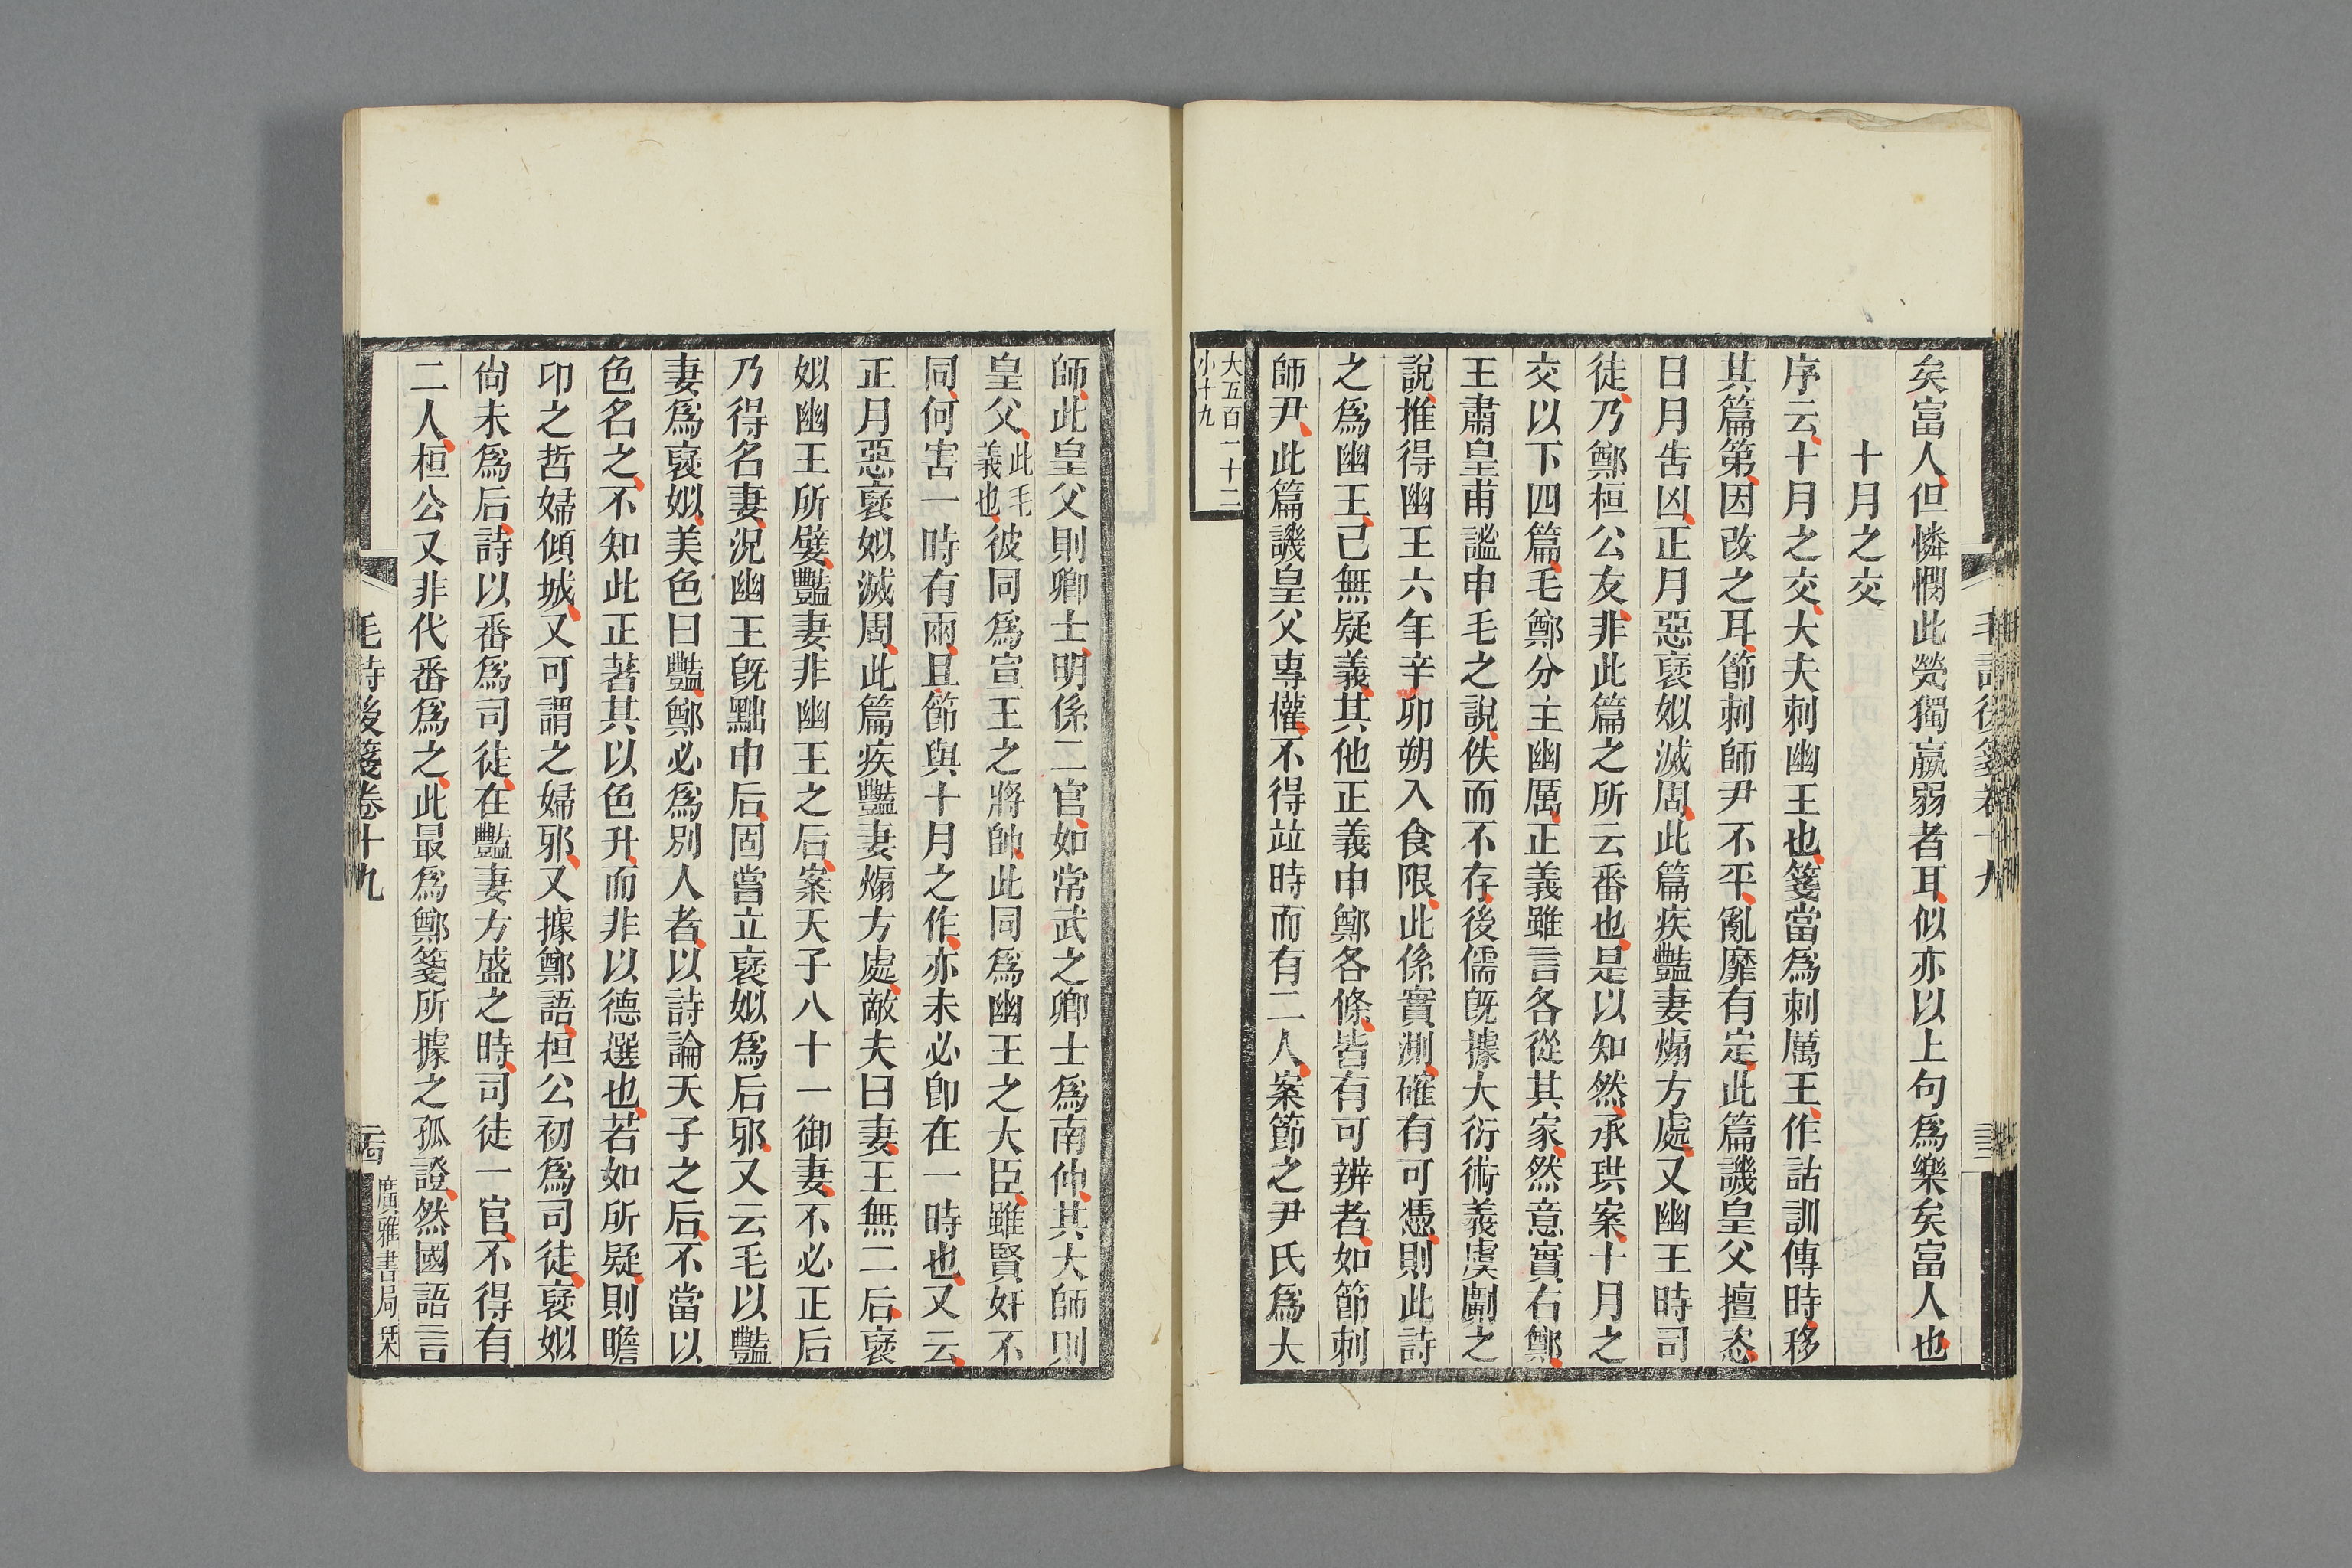 矣富人但憐憫此煢獨羸弱者耳似亦以上句爲樂矣富人也
十月之交
序云十月之交大夫刺幽王也箋當爲刺厲王作詁訓傳時移
其篇第因改之耳節刺師尹不平亂靡有定此篇譏皇父擅恣
日月告凶正月惡襃姒滅周此篇疾豔妻煽方處又幽王時司
徒乃鄭桓公友非此篇之所云番也是以知然承珙案十月之
交以下四篇毛鄭分主幽厲正義雖言各從其家然意實右鄭
王肅皇甫謐申毛之說佚而不存後儒旣據大衍術義虞𠠎之
說推得幽王六年辛卯朔入食限此係實測確有可憑則此詩
之爲幽王已無疑義其他正義申鄭各條皆有可辨者如節刺
師尹此篇譏皇父專權不得竝時而有二人案節之尹氏爲大
大五百一十二
小十九
師此皇父則卿士明係二官如常武之卿士爲南仲其大師則
皇父此毛義也彼同爲宣王之將帥此同爲幽王之大臣雖賢奸不
同何害一時有兩且節與十月之作亦未必卽在一時也又云
正月惡襃姒滅周此篇疾豔妻煽方處敵夫曰妻王無二后襃
姒幽王所嬖豔妻非幽王之后案天子八十一御妻不必正后
乃得名妻況幽王旣黜申后固嘗立襃姒爲后邪又云毛以豔
妻爲襃姒美色曰豔鄭必爲別人者以詩論天子之后不當以
色名之不知此正著其以色升而非以德選也若如所疑則瞻
卬之哲婦傾城又可謂之婦邪又據鄭語桓公初爲司徒襃姒
尙未爲后詩以番爲司徒在豔妻方盛之時司徒一官不得有
二人桓公又非代番爲之此最爲鄭箋所據之孤證然國語言
毛詩後箋卷十九
廣雅書局栞